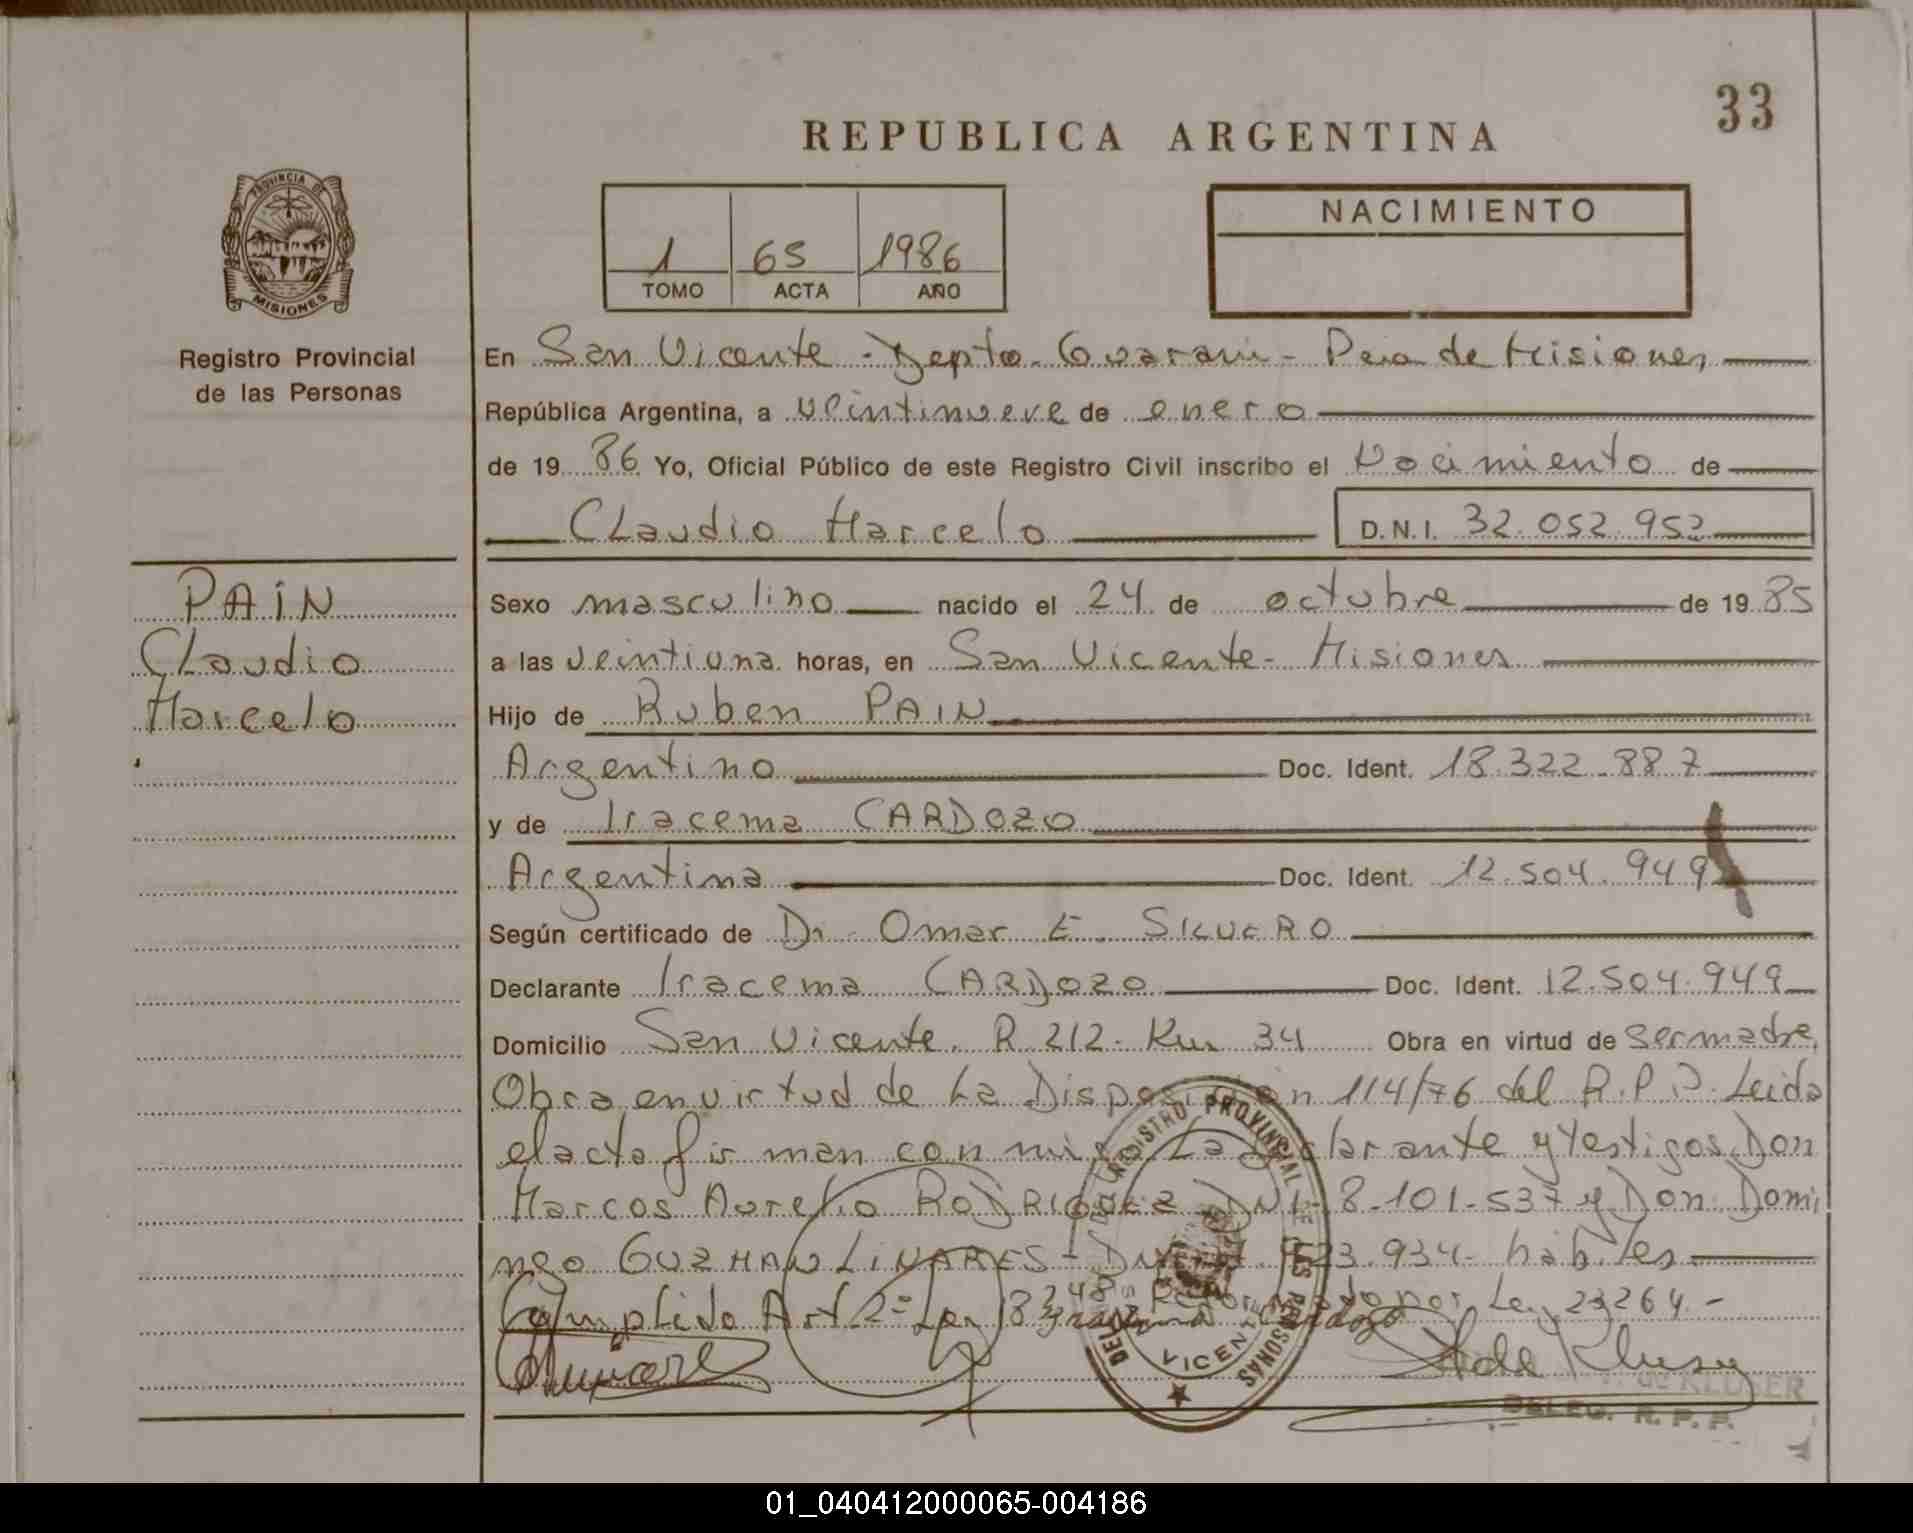 33
REPUBLICA ARGENTINA
PROVINCIA DE
MISIONES
Registro Provincial
de las Personas
1 65 1986
TOMO ACTA AÑO
NACIMIENTO
En San Vicente - Depto. Guarani - Pcia de Misiones
República Argentina, a veintinueve de enero
de 19 86 Yo, Oficial Público de este Registro Civil inscribo el Nacimiento de
Claudio Marcelo D.N.I. 32.052.952
PAIN
Claudio
Marcelo
Sexo masculino nacido el 24 de octubre de 19 85
a las veintiuna horas, en San Vicente - Misiones
Hijo de Ruben PAIN
Argentino Doc. Ident. 18.322.887
y de Iracema CARDOZO
Argentina Doc. Ident. 12.504.949
Según certificado de Dr. Omar E. SILVERO
Declarante Iracema CARDOZO Doc. Ident. 12.504.949
Domicilio San Vicente. R 212 - Km 34 Obra en virtud de ser madre,
Obra en virtud de La Disposición 114/76 del R.P.P. Leida
el acta firman conmigo La declarante y testigos Don
Marcos Aurelio RODRIGUEZ DNI. 8-101-537 y Don Domi
ngo GUZMAN LINARES - 23.934 - hábiles
Cumplido Art. 2º Ley 18248 por Ley 23264.-
Iracema Cardozo
DEL REGISTRO PROVINCIAL DE LAS PERSONAS
VICENTE
KLUSER
DELEG. R. P. P.
01_040412000065-004186